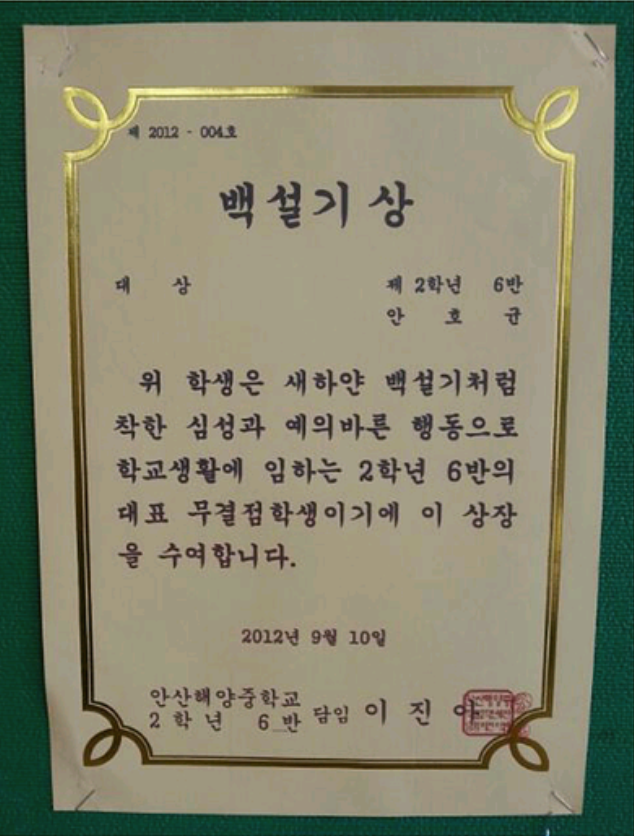 제 2012 - 004호
백설기상
대 상 제 2학년 6반
안 호 균
위 학생은 새하얀 백설기처럼
착한 심성과 예의바른 행동으로
학교생활에 임하는 2학년 6반의
대표 무결점학생이기에 이 상장
을 수여합니다.
2012년 9월 10일
안산해양중학교
2 학 년 6 반 담임 이 진